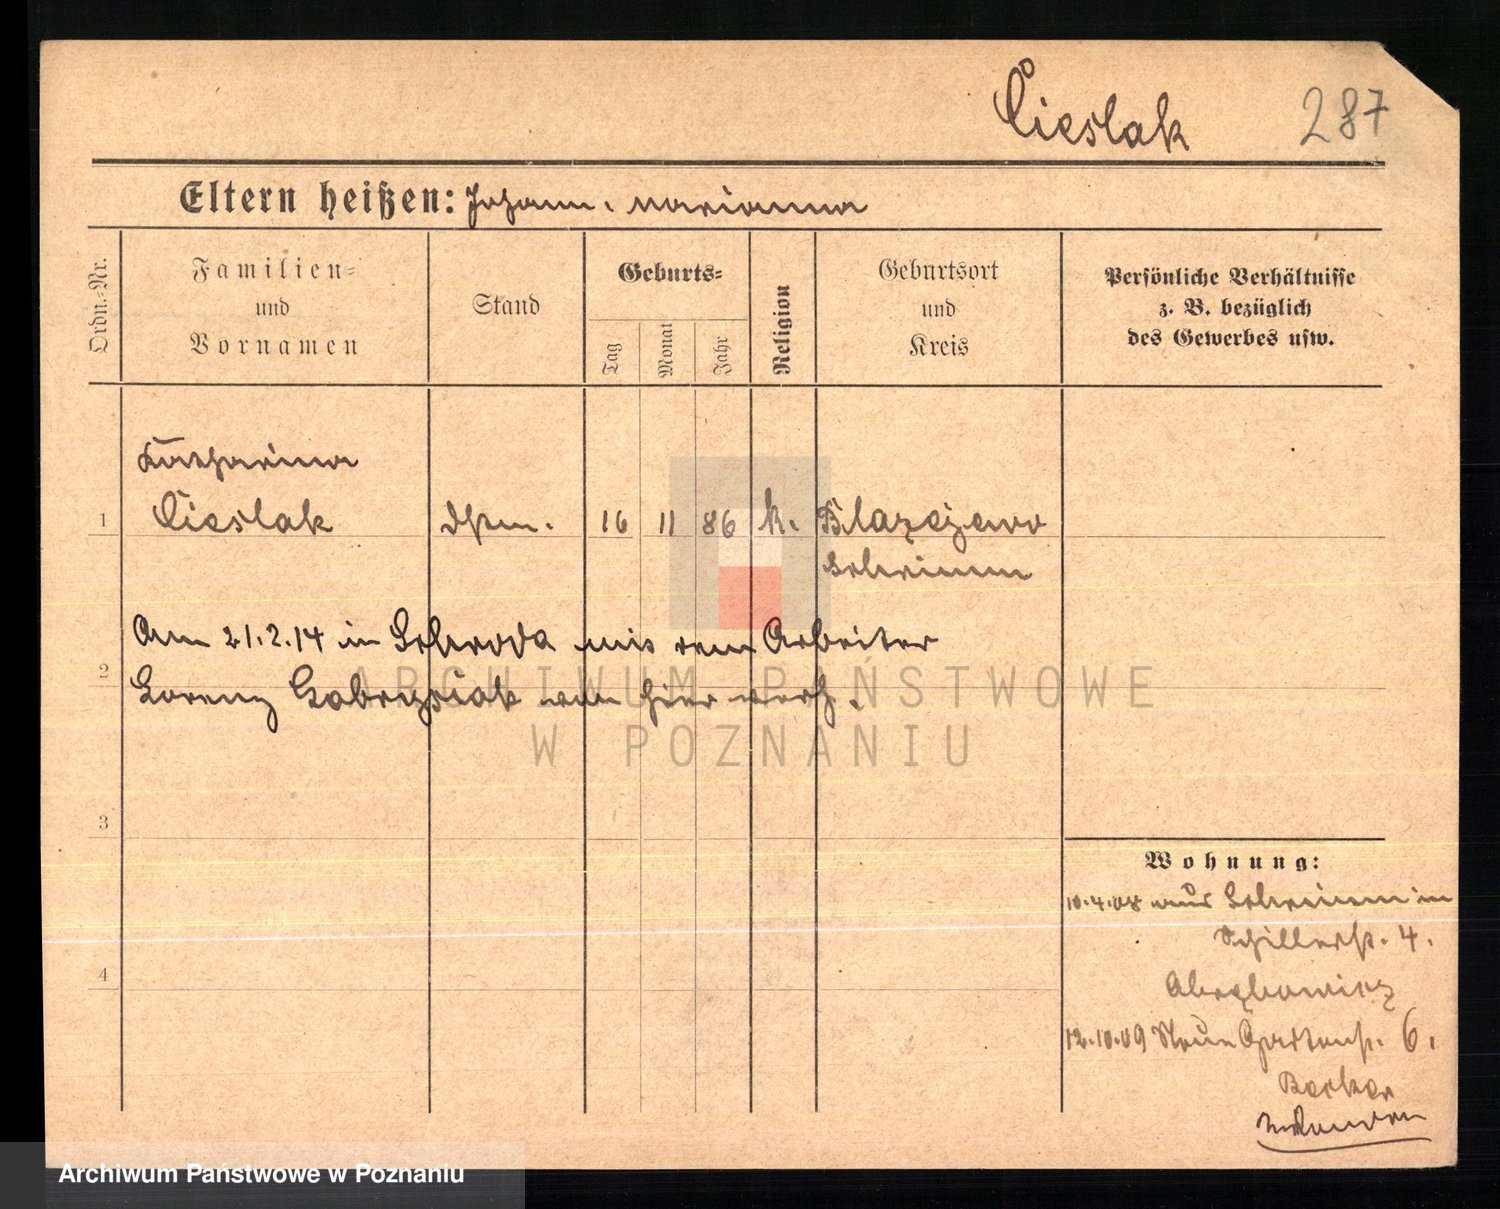 Cieslak 287
Eltern heißen: Johann. Marianna
Ordn.-Nr.
Familien-
und
Vornamen
Stand
Geburts-
Tag
Monat
Jahr
Religion
Geburtsort
und
Kreis
Persönliche Verhältnisse
z. B. bezüglich
des Gewerbes usw.
Katharina
1 Cieslak 16 11 86 k. Blazejewo
Schrimm
Am 21.2.14 in Schroda mit dem Arbeiter
2
Lorenz von hier verh.
ARCHIWUM PAŃSTWOWE
W POZNANIU
3
Wohnung:
10.4.08 aus Schrimm in
Schillerstr. 4.
4
12.10.09 Neue Gartenstr. 6.
Becker
Archiwum Państwowe w Poznaniu